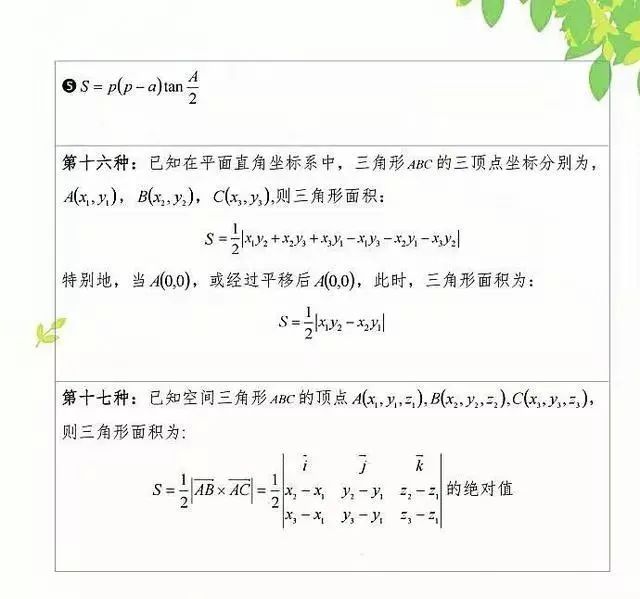 ❺ S = p(p − a)tan A/2
第十六种：已知在平面直角坐标系中，三角形ABC的三顶点坐标分别为，
A(x₁,y₁)，B(x₂,y₂)，C(x₃,y₃),则三角形面积：
S = 1/2|x₁y₂ + x₂y₃ + x₃y₁ − x₁y₃ − x₂y₁ − x₃y₂|
特别地，当A(0,0)，或经过平移后A(0,0)，此时，三角形面积为：
S = 1/2|x₁y₂ − x₂y₁|
第十七种：已知空间三角形ABC的顶点A(x₁,y₁,z₁),B(x₂,y₂,z₂),C(x₃,y₃,z₃)，
则三角形面积为:
S = 1/2|AB × AC| = 1/2 | i j k |
| x₂ − x₁ y₂ − y₁ z₂ − z₁ | 的绝对值
| x₃ − x₁ y₃ − y₁ z₃ − z₁ |